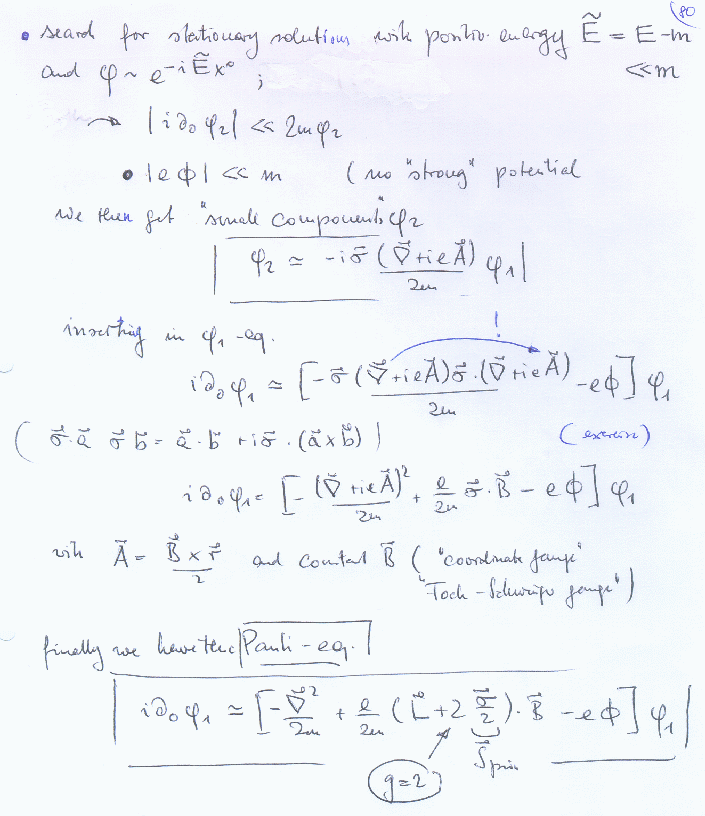 80
• search for stationary solutions with positiv. energy Ẽ = E-m
and φ ~ e^{-iẼx⁰} ; ≪ m
→ |i∂₀φ₂| ≪ 2mφ₂
• |eϕ| ≪ m ( no "strong" potential
we then get "small components" φ₂
φ₂ ≃ -iσ⃗ (∇⃗+ieA⃗)/2m φ₁
inserting in φ₁-eq. !
i∂₀φ₁ ≃ [-σ⃗(∇⃗+ieA⃗)σ⃗·(∇⃗+ieA⃗)/2m - eϕ] φ₁
( σ⃗·a⃗ σ⃗b⃗ = a⃗·b⃗ + iσ⃗·(a⃗×b⃗) ) (exercise)
i∂₀φ₁ = [-(∇⃗+ieA⃗)²/2m + e/2m σ⃗·B⃗ - eϕ] φ₁
with A⃗ = B⃗×r⃗/2 and constant B⃗ ( "coordinate gauge"
"Fock-Schwinger gauge")
finally we have the Pauli-eq.
i∂₀φ₁ ≃ [-∇⃗²/2m + e/2m (L⃗+2 σ⃗/2)·B⃗ - eϕ] φ₁
g=2 S⃗pin